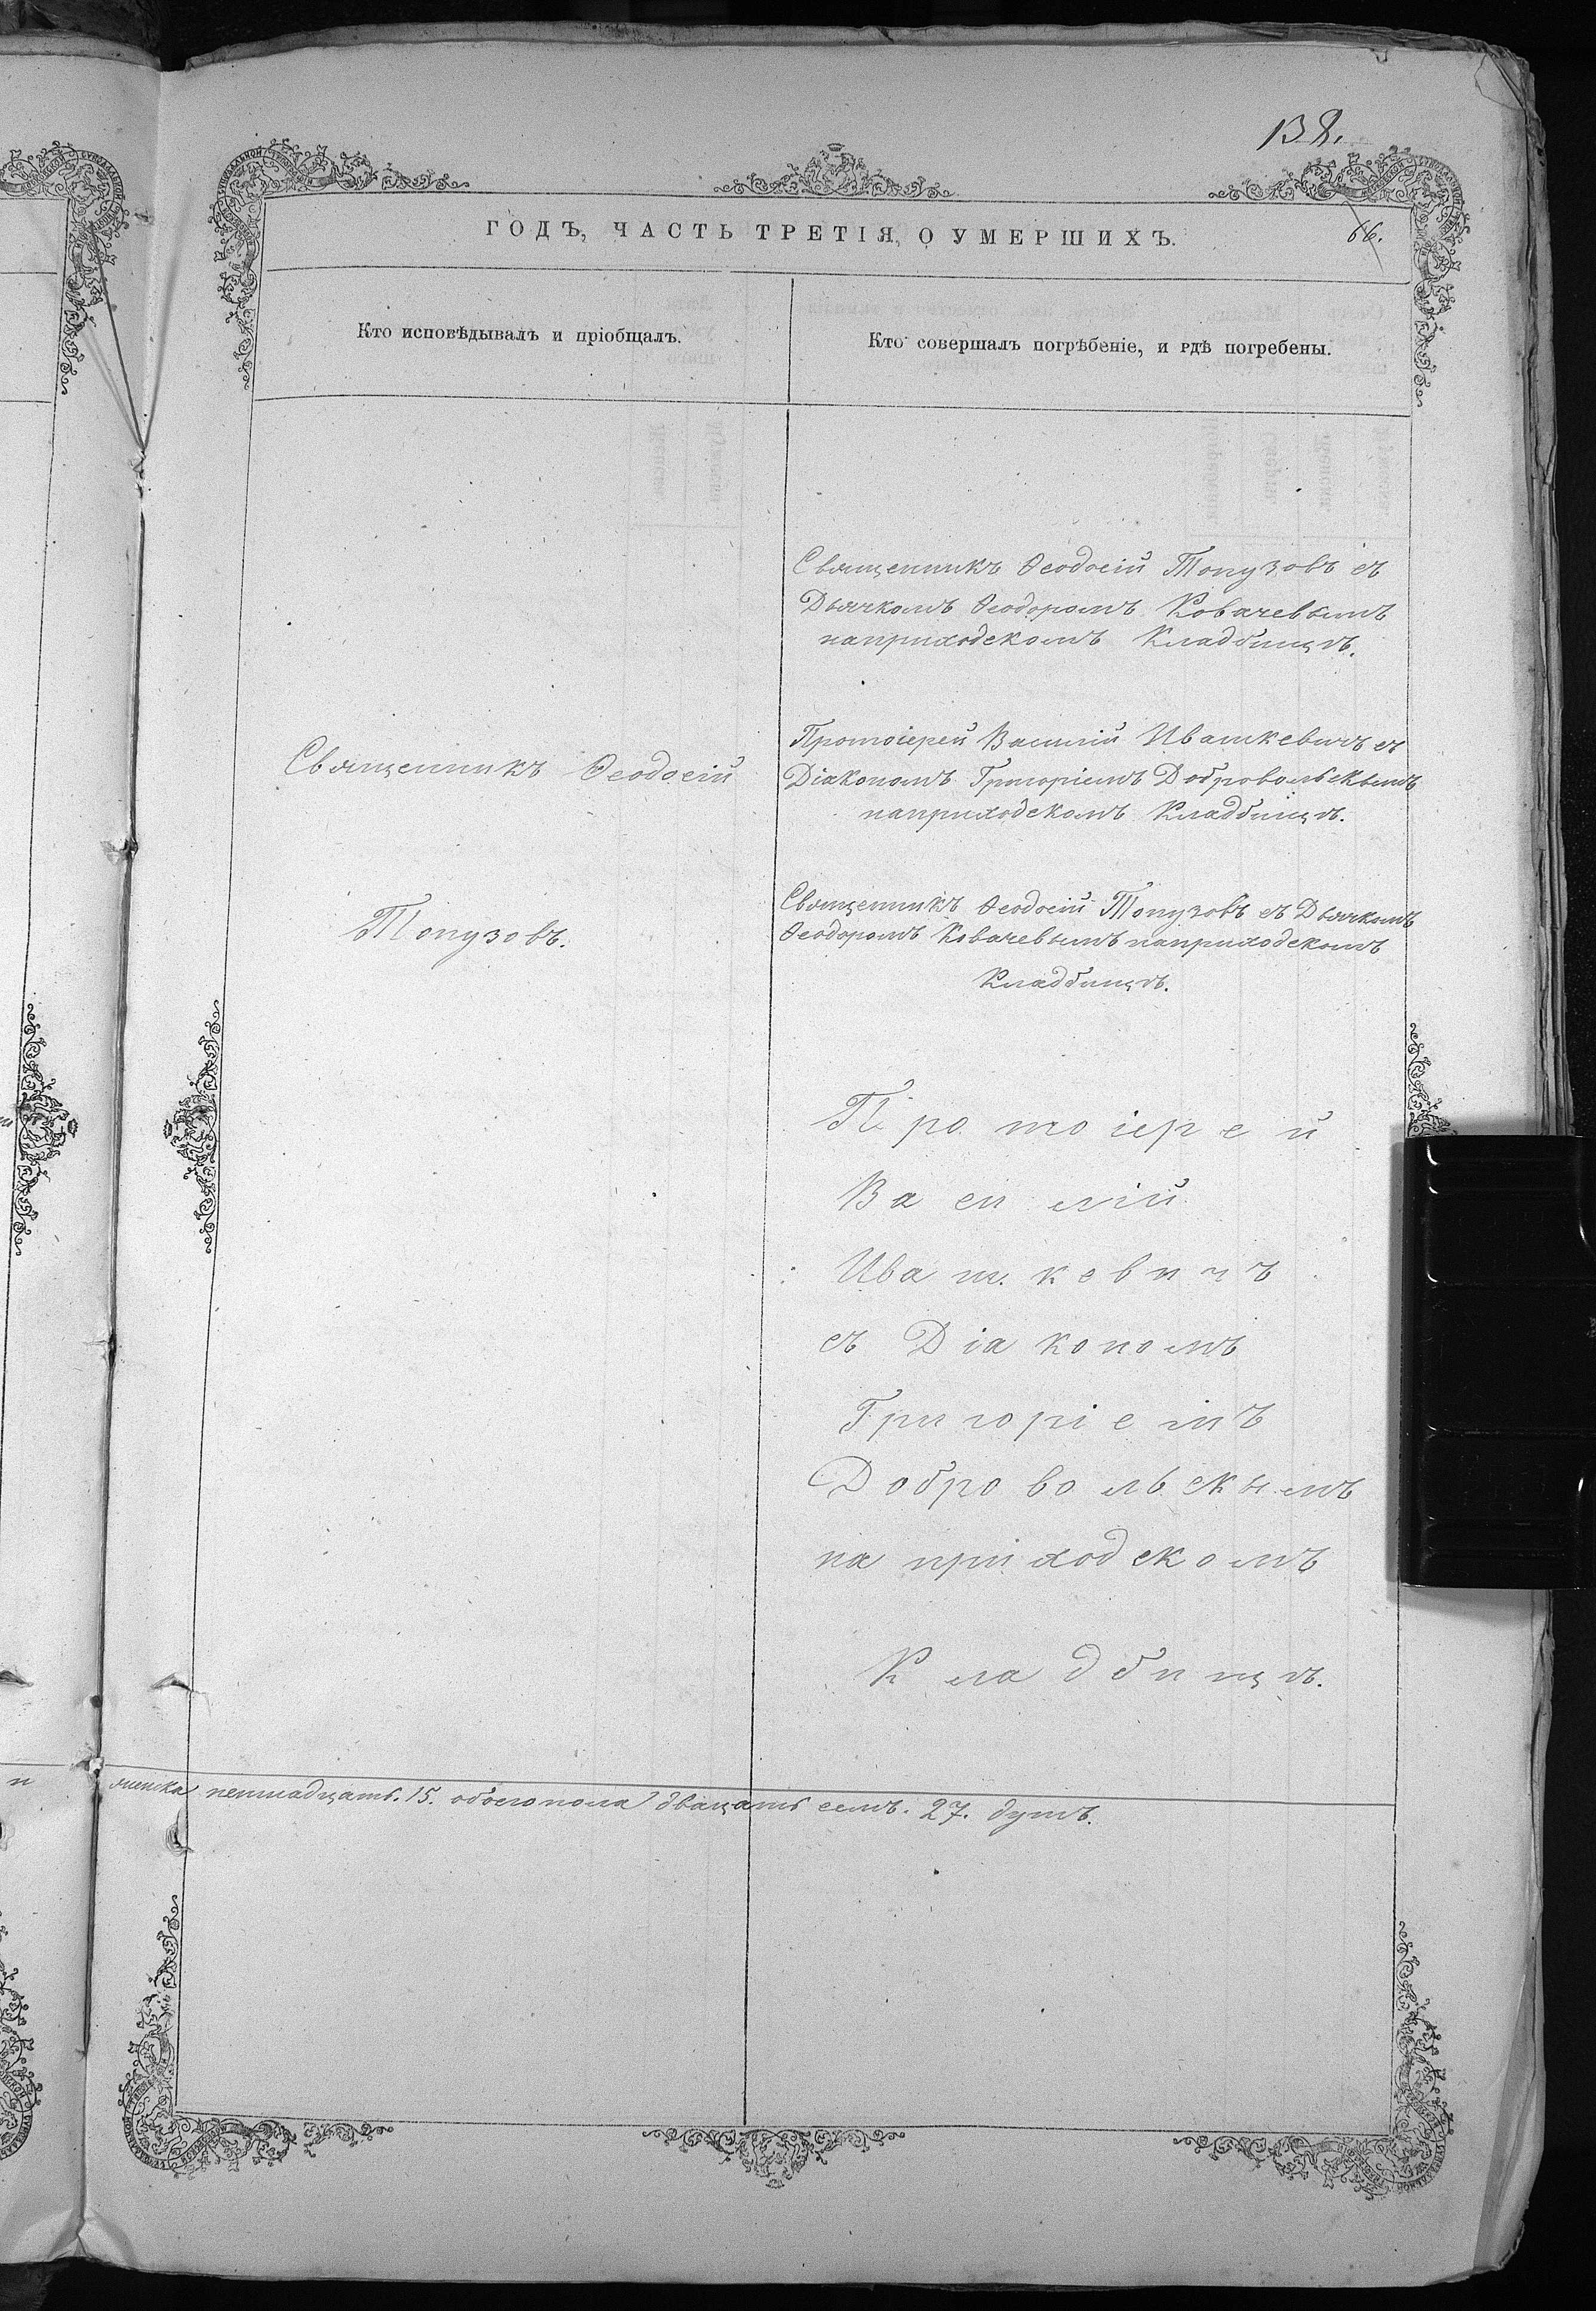 138.
ГОДЪ, ЧАСТЬ ТРЕТІЯ, О УМЕРШИХЪ.
66.
Кто исповѣдывалъ и пріобщалъ.
Кто совершалъ погрѣбеніе, и гдѣ погребены.
Священникъ Ѳеодосій
Топузовъ.
Священникъ Ѳеодосій Топузовъ съ
Дьячкомъ Ѳеодоромъ Ковачевымъ
наприходскомъ Кладбищѣ.
Протоіерей Василій Ивашкевичъ съ
Діакономъ Григоріемъ Добровольскымъ
наприходскомъ Кладбищѣ.
Священникъ Ѳеодосій Топузовъ съ Дьячкомъ
Ѳеодоромъ Ковачевымъ наприходскомъ
Кладбищѣ.
Протоіерей
Василій
Ивашкевичъ
съ Діакономъ
Григоріемъ
Добровольскымъ
на приходскомъ
Кладбищѣ.
женска петнадцать. 15. обоегопола двацать семъ. 27. душъ.